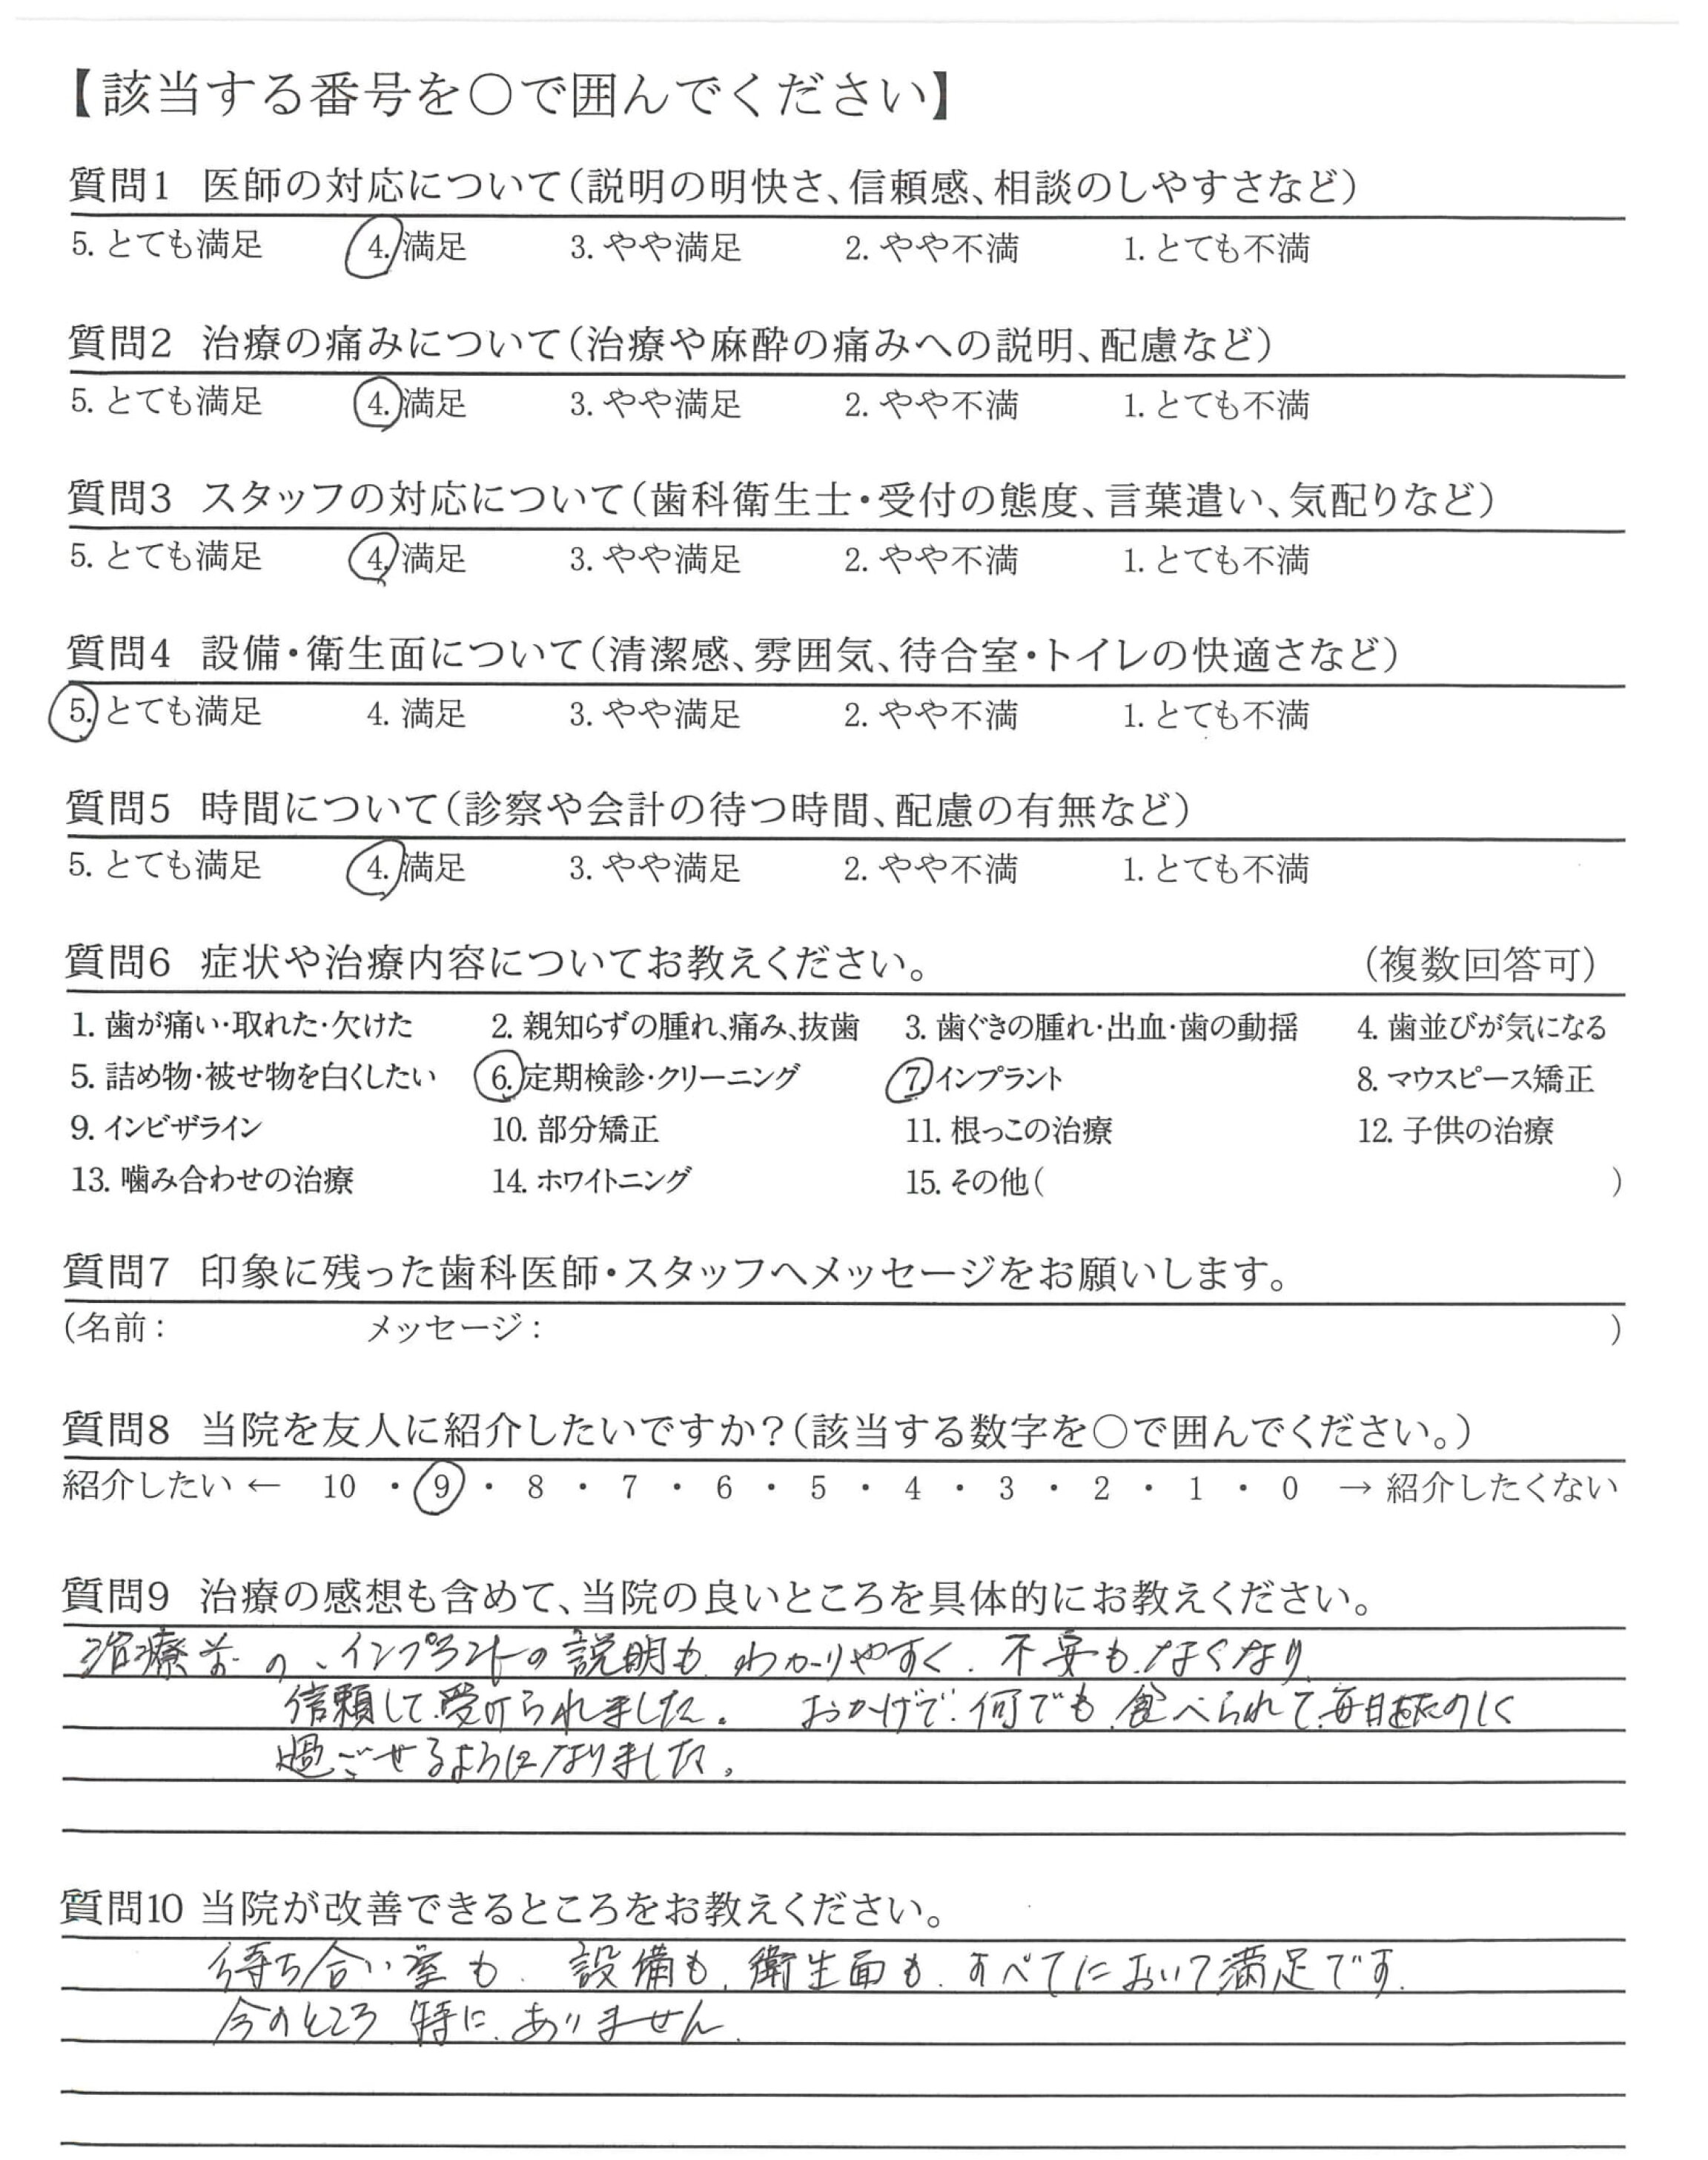 【該当する番号を○で囲んでください】
質問1 医師の対応について(説明の明快さ、信頼感、相談のしやすさなど)
5. とても満足 4. 満足 3. やや満足 2. やや不満 1. とても不満
質問2 治療の痛みについて(治療や麻酔の痛みへの説明、配慮など)
5. とても満足 4. 満足 3. やや満足 2. やや不満 1. とても不満
質問3 スタッフの対応について(歯科衛生士・受付の態度、言葉遣い、気配りなど)
5. とても満足 4. 満足 3. やや満足 2. やや不満 1. とても不満
質問4 設備・衛生面について(清潔感、雰囲気、待合室・トイレの快適さなど)
5. とても満足 4. 満足 3. やや満足 2. やや不満 1. とても不満
質問5 時間について(診察や会計の待つ時間、配慮の有無など)
5. とても満足 4. 満足 3. やや満足 2. やや不満 1. とても不満
質問6 症状や治療内容についてお教えください。 (複数回答可)
1. 歯が痛い・取れた・欠けた 2. 親知らずの腫れ、痛み、抜歯 3. 歯ぐきの腫れ・出血・歯の動揺 4. 歯並びが気になる
5. 詰め物・被せ物を白くしたい 6. 定期検診・クリーニング 7. インプラント 8. マウスピース矯正
9. インビザライン 10. 部分矯正 11. 根っこの治療 12. 子供の治療
13. 噛み合わせの治療 14. ホワイトニング 15. その他( )
質問7 印象に残った歯科医師・スタッフへメッセージをお願いします。
(名前: メッセージ: )
質問8 当院を友人に紹介したいですか?(該当する数字を○で囲んでください。)
紹介したい ← 10 ・ 9 ・ 8 ・ 7 ・ 6 ・ 5 ・ 4 ・ 3 ・ 2 ・ 1 ・ 0 → 紹介したくない
質問9 治療の感想も含めて、当院の良いところを具体的にお教えください。
治療前の、インプラントの説明も わかりやすく、不安も、なくなり
信頼して受けられました。 おかげで何でも食べられて、毎日をたのしく
過ごせるようになりました。
質問10 当院が改善できるところをお教えください。
待ち合い室も、設備も、衛生面も、すべてにおいて満足です。
今のところ 特に、ありません。